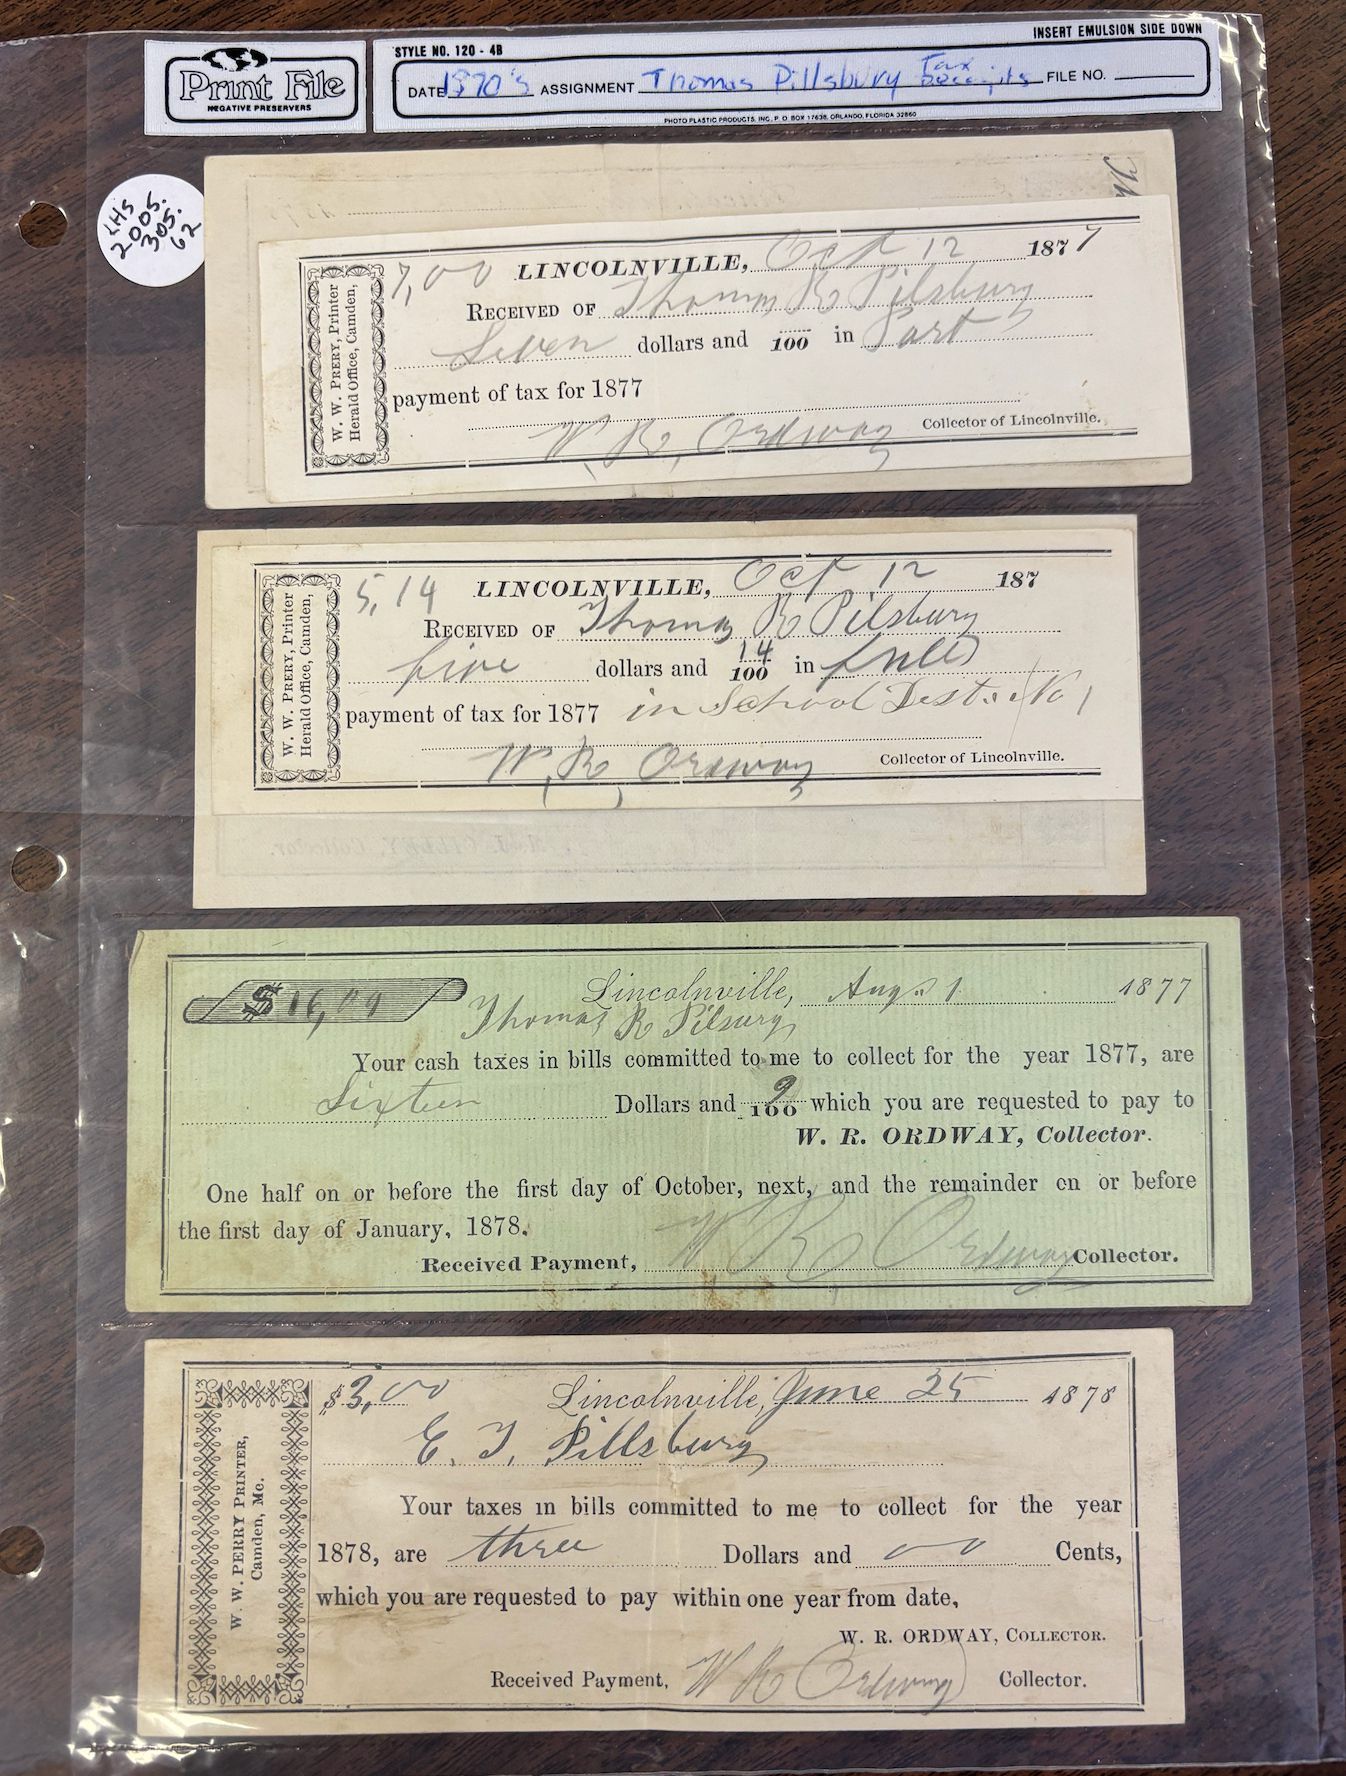 INSERT EMULSION SIDE DOWN
Print File
NEGATIVE PRESERVERS
STYLE NO. 120 - 4B
DATE 1870's ASSIGNMENT Thomas Pillsbury Tax Receipts FILE NO.
PHOTO PLASTIC PRODUCTS, INC. P. O. BOX 17638, ORLANDO, FLORIDA 32860
LHS
2005.
305.
62
W. W. PRERY, Printer
Herald Office, Camden,
7,00 LINCOLNVILLE, Oct 12 1877
RECEIVED OF Thomas R Pilsbury
Seven dollars and /100 in Part
payment of tax for 1877
W. R. Ordway Collector of Lincolnville.
W. W. PRERY, Printer
Herald Office, Camden,
5,14 LINCOLNVILLE, Oct 12 187
RECEIVED OF Thomas R Pilsbury
five dollars and 14/100 in full
payment of tax for 1877 in School Dest. No 1
W. R. Ordway Collector of Lincolnville.
$16,09 Lincolnville, Aug. 1 1877
Thomas R Pilsury
Your cash taxes in bills committed to me to collect for the year 1877, are
Sixteen Dollars and 9/100 which you are requested to pay to
W. R. ORDWAY, Collector.
One half on or before the first day of October, next, and the remainder on or before
the first day of January, 1878.
Received Payment, W R Ordway Collector.
W. W. PERRY PRINTER,
Camden, Me.
$3,00 Lincolnville, June 25 1878
E. T. Pillsbury
Your taxes in bills committed to me to collect for the year
1878, are three Dollars and 00 Cents,
which you are requested to pay within one year from date,
W. R. ORDWAY, COLLECTOR.
Received Payment, W R Ordway Collector.